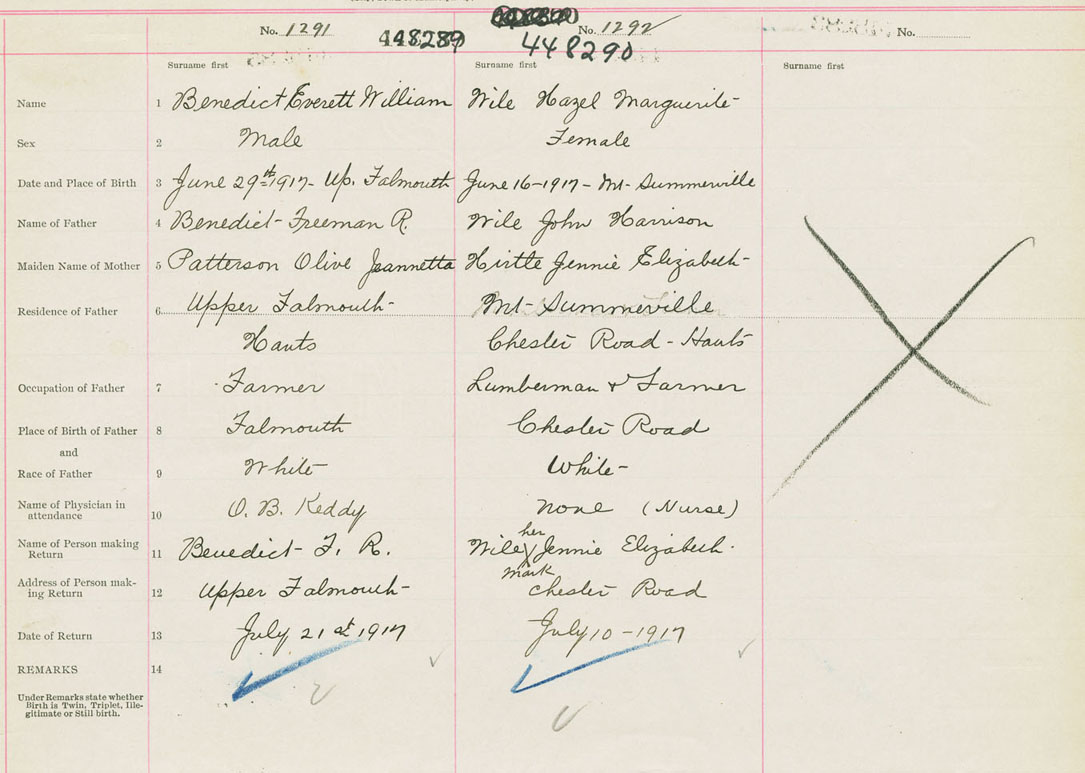 No. 1291
448289
No. 1292
448290
No.
Surname first
Surname first
Surname first
Name 1 Benedict Everett William Wile Hazel Marguerite
Sex 2 Male Female
Date and Place of Birth 3 June 29th 1917 - Up. Falmouth June 16 - 1917 - Mt. Summerville
Name of Father 4 Benedict - Freeman R. Wile John Harrison
Maiden Name of Mother 5 Patterson Olive Jeannetta Hirtle Jennie Elizabeth -
Residence of Father 6 Upper Falmouth - Mt - Summerville
Hants Chester Road - Hants
Occupation of Father 7 Farmer Lumberman & Farmer
Place of Birth of Father 8 Falmouth Chester Road
and
Race of Father 9 White - White -
Name of Physician in
attendance 10 O. B. Keddy none (Nurse)
her
Name of Person making
Return 11 Benedict - F. R. Wile X Jennie Elizabeth.
mark
Address of Person mak-
ing Return 12 Upper Falmouth - Chester Road
Date of Return 13 July 21st 1917 July 10 - 1917
REMARKS 14
Under Remarks state whether
Birth is Twin, Triplet, Ille-
gitimate or Still birth.